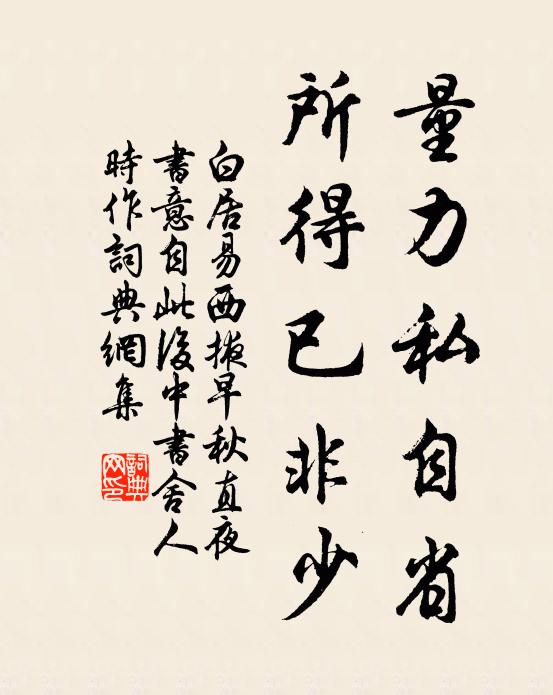 量力私自省
所得已非少
白居易西掖早秋直夜
書意自此後中書舍人
時作詞典網集
詞典網印